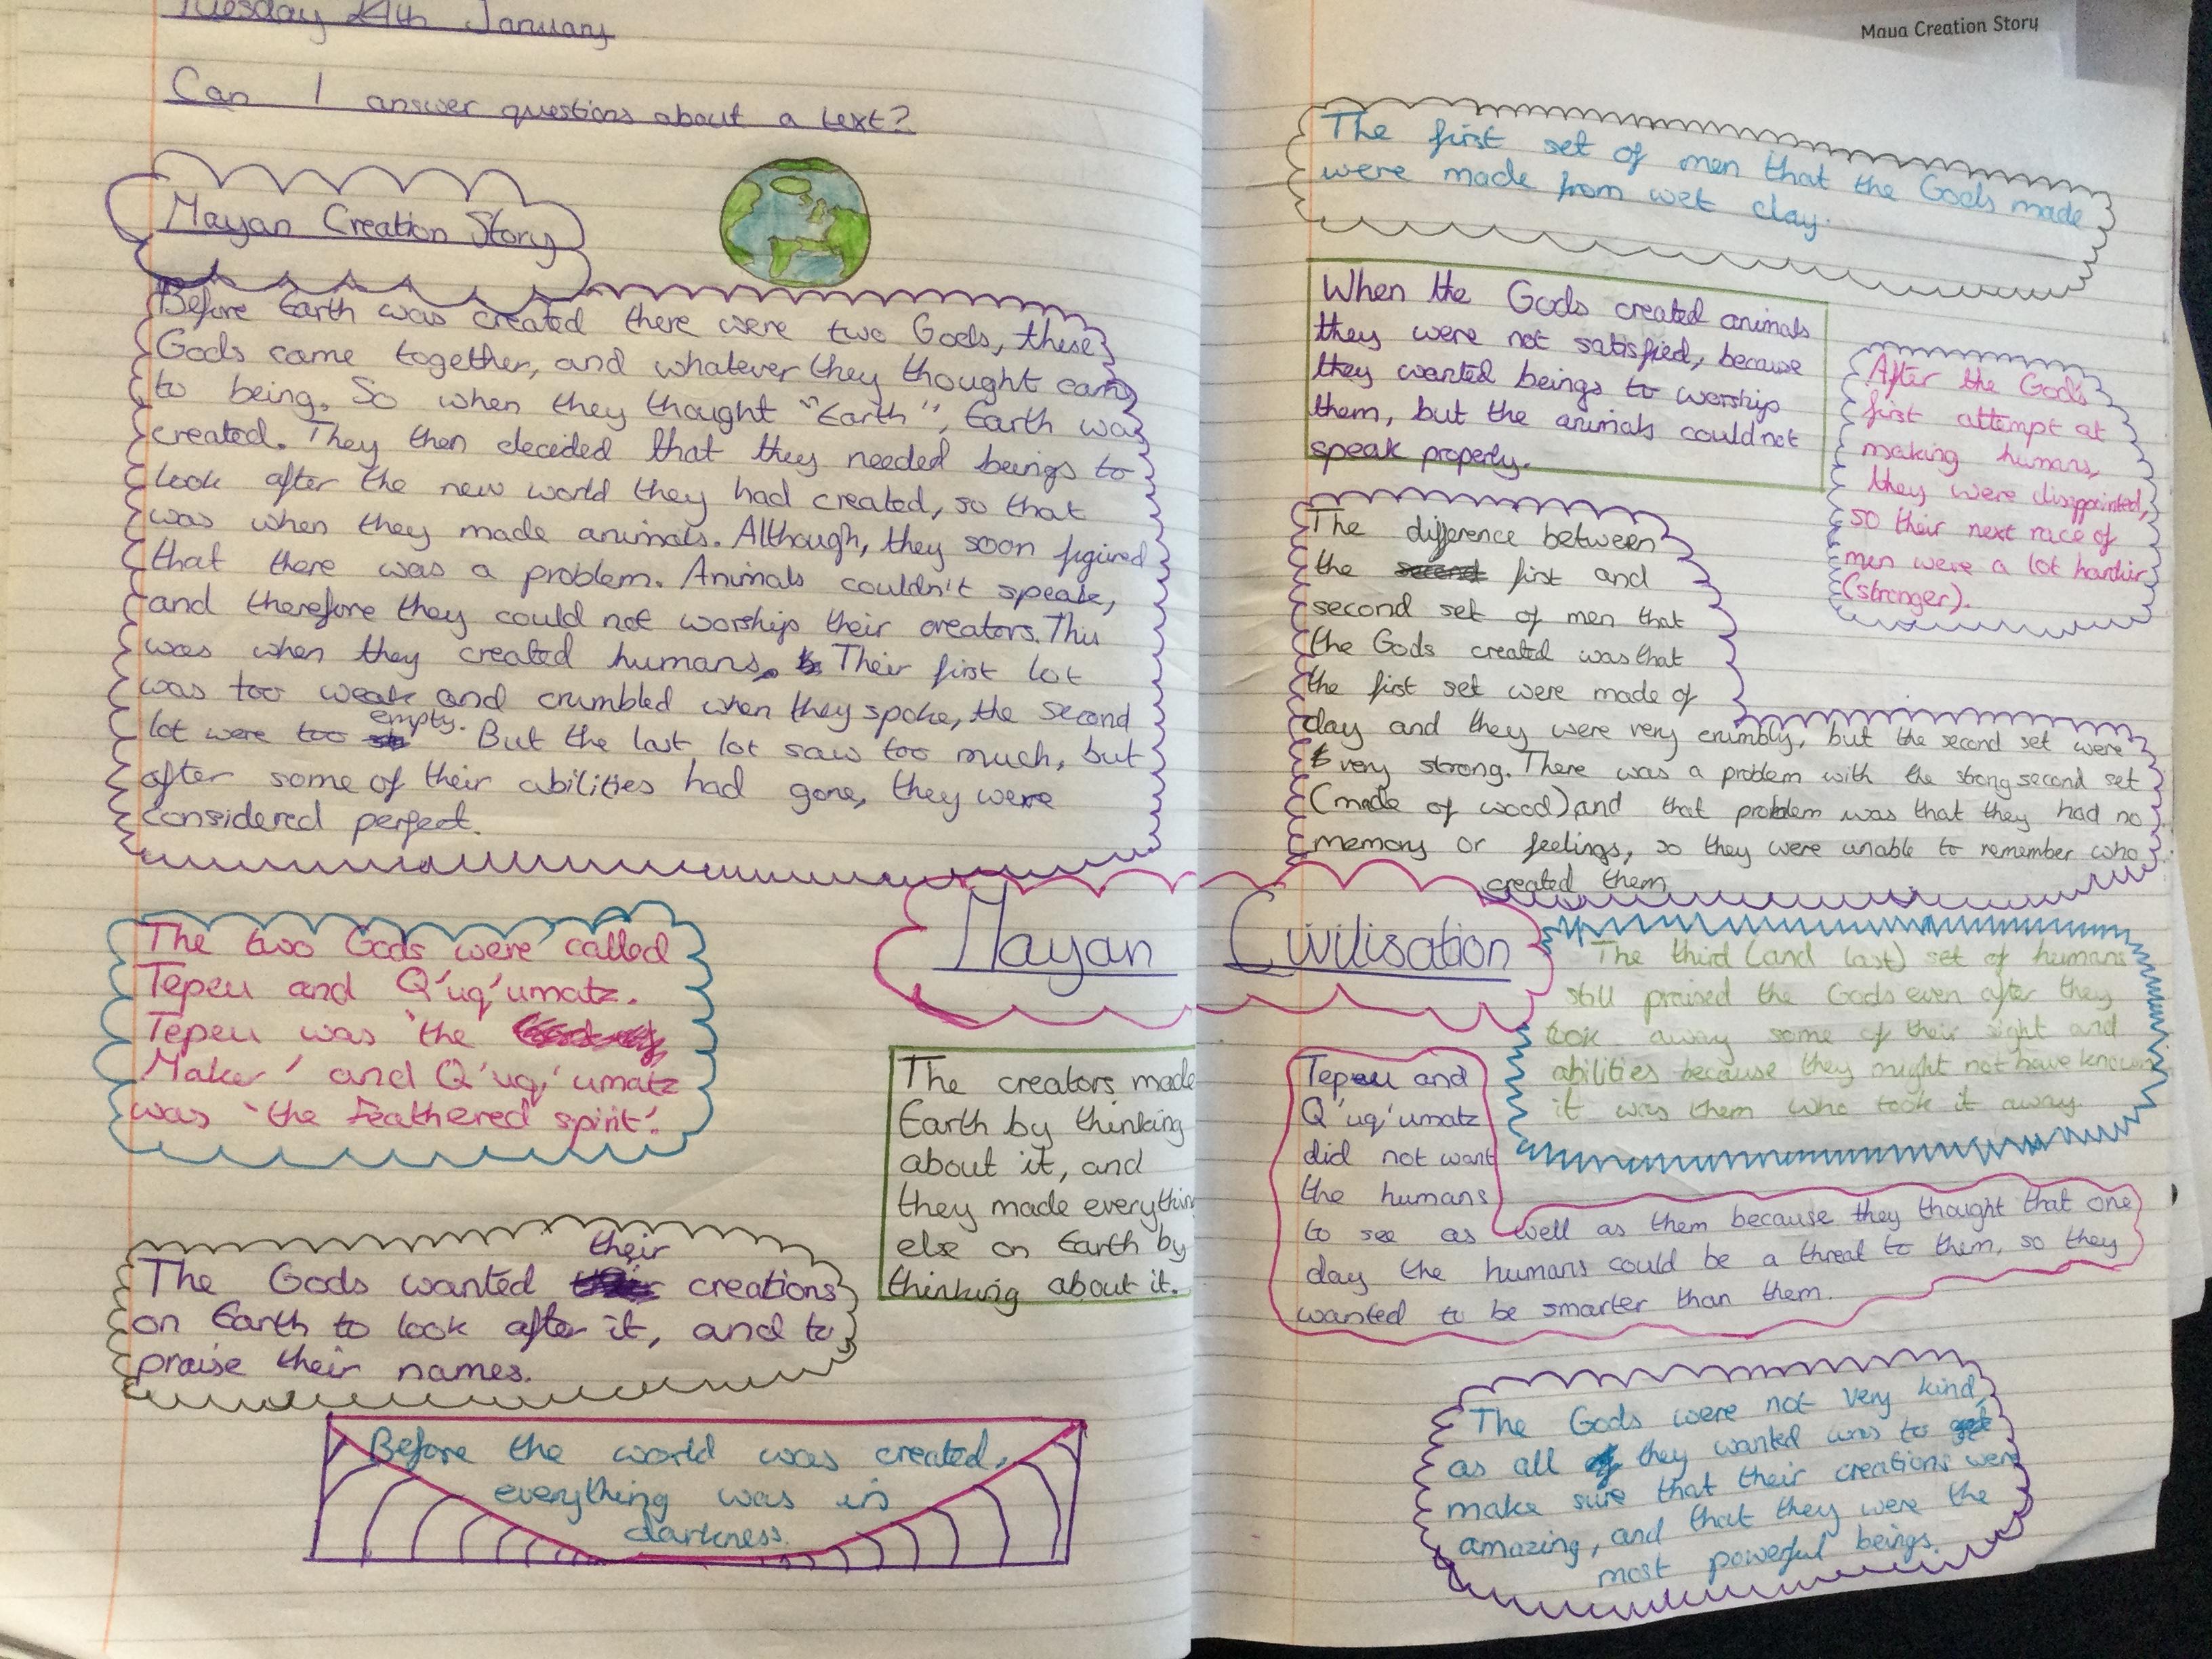 Tuesday 24th January
Can I answer questions about a text?
Mayan Creation Story
Before Earth was created there were two Gods, these
Gods came together, and whatever they thought came
to being. So when they thought "Earth", Earth was
created. They then decided that they needed beings to
look after the new world they had created, so that
was when they made animals. Although, they soon figured
that there was a problem. Animals couldn't speak,
and therefore they could not worship their creators. This
was when they created humans. Their first lot
was too weak and crumbled when they spoke, the second
lot were too empty. But the last lot saw too much, but
after some of their abilities had gone, they were
considered perfect.
The two Gods were called
Tepeu and Q'uq'umatz.
Tepeu was 'the
Maker' and Q'uq'umatz
was 'the Feathered spirit'.
The Gods wanted their creations
on Earth to look after it, and to
praise their names.
Before the world was created,
everything was in
darkness.
Mayan Civilisation
The creators made
Earth by thinking
about it, and
they made everything
else on Earth by
thinking about it.
Maya Creation Story
The first set of men that the Gods made
were made from wet clay.
When the Gods created animals
they were not satisfied, because
they wanted beings to worship
them, but the animals could not
speak properly.
After the God's
first attempt at
making humans,
they were disappointed,
so their next race of
men were a lot hardier
(stronger).
The difference between
the second first and
second set of men that
the Gods created was that
the first set were made of
clay and they were very crumbly, but the second set were
very strong. There was a problem with the strong second set
(made of wood) and that problem was that they had no
memory or feelings, so they were unable to remember who
created them
The third (and last) set of humans
still praised the Gods even after they
took away some of their sight and
abilities because they might not have known
it was them who took it away.
Tepeu and
Q'uq'umatz
did not want
the humans
to see as well as them because they thought that one
day the humans could be a threat to them, so they
wanted to be smarter than them.
The Gods were not very kind,
as all they wanted was to get
make sure that their creations were
amazing, and that they were the
most powerful beings.